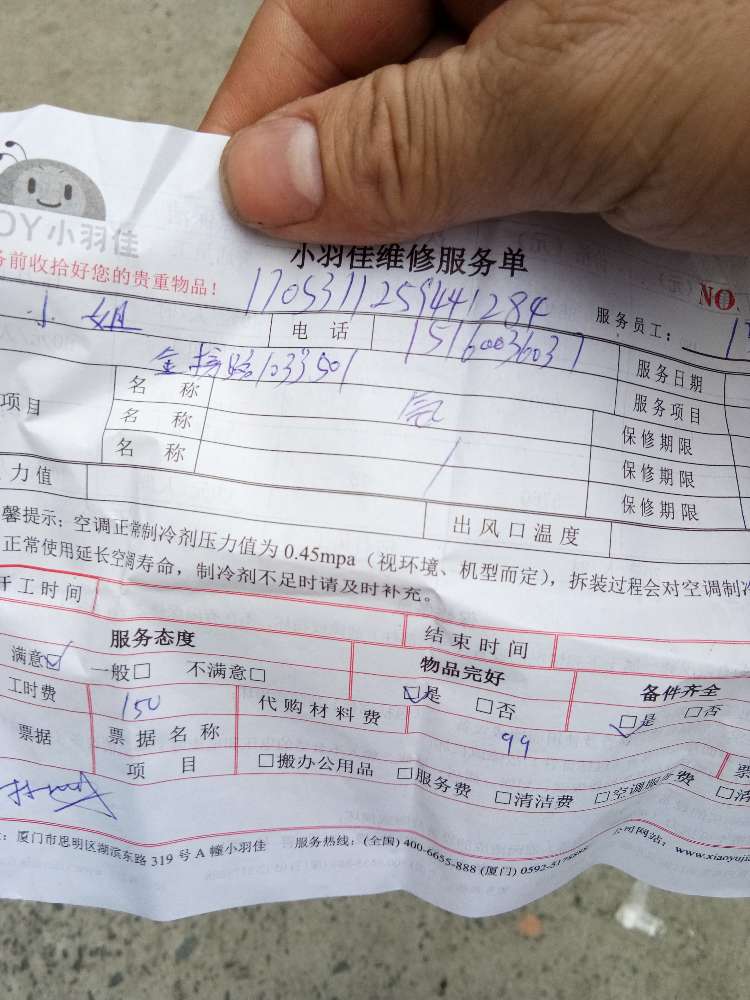 OY小羽佳
务前收拾好您的贵重物品!
小羽佳维修服务单
NO.
170531125441284
服务员工:
小 姐
电 话
15160036037
服务日期
1033501
项目
名 称
氟
服务项目
名 称
保修期限
名 称
保修期限
保修期限
力值
出风口温度
馨提示: 空调正常制冷剂压力值为 0.45mpa (视环境、机型而定), 拆装过程会对空调制冷
正常使用延长空调寿命, 制冷剂不足时请及时补充。
开工时间
结束时间
服务态度
物品完好
备件齐全
满意☑ 一般□ 不满意□
☑是 □否
☑是 □否
工时费
150
代购材料费
99
票据
票据名称
票
项 目
□搬办公用品 □服务费 □清洁费 □空调服务费 □清
厦门市思明区湖滨东路 319 号 A 幢小羽佳 服务热线: (全国) 400-6655-888 (厦门) 0592-5175888
公司网站: www.xiaoyujia